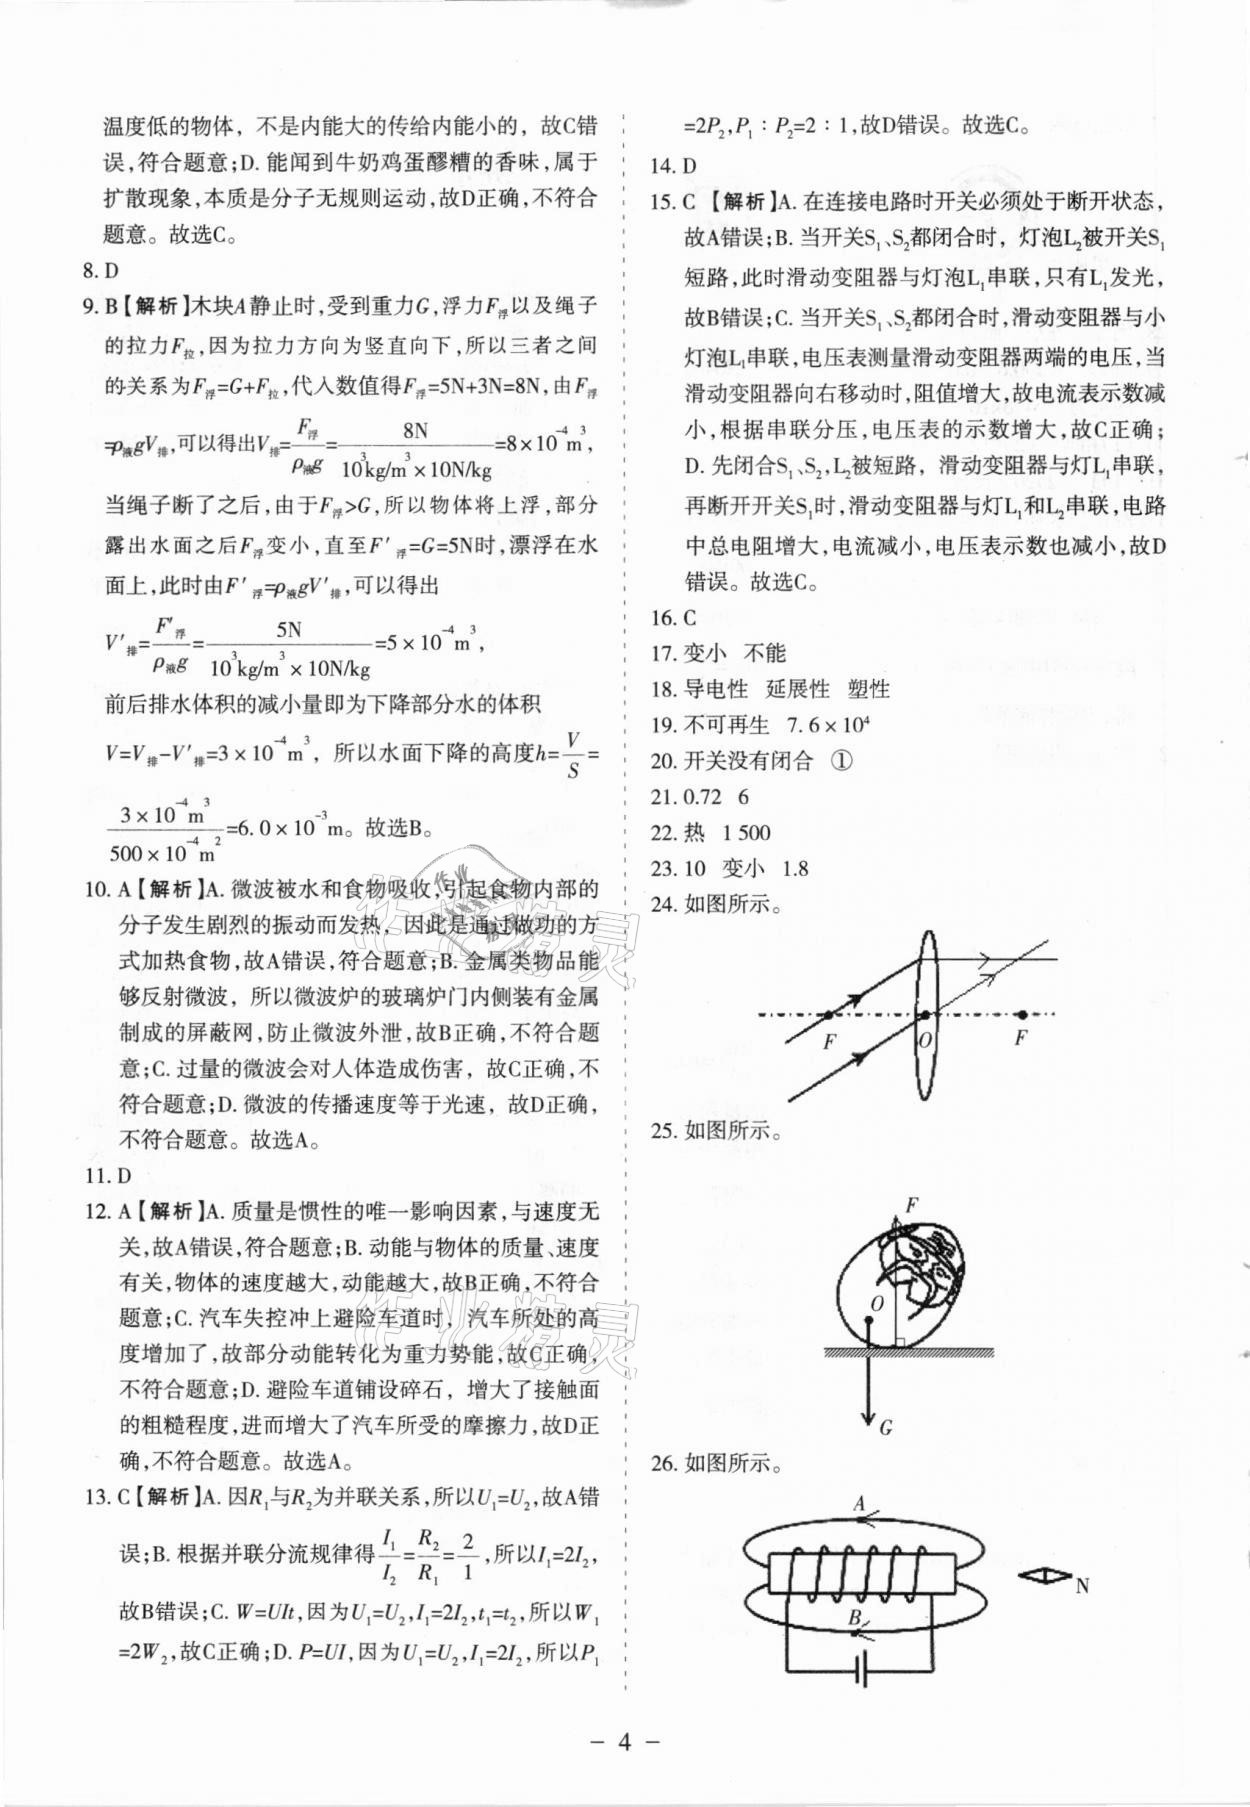 温度低的物体，不是内能大的传给内能小的，故C错
误,符合题意;D. 能闻到牛奶鸡蛋醪糟的香味,属于
扩散现象,本质是分子无规则运动,故D正确,不符合
题意。故选C。
8. D
9. B【解析】木块A静止时,受到重力G,浮力F浮以及绳子
的拉力F拉,因为拉力方向为竖直向下,所以三者之间
的关系为F浮=G+F拉,代入数值得F浮=5N+3N=8N,由F浮
=ρ液gV排,可以得出V排=F浮/ρ液g=8N/(10³kg/m³×10N/kg)=8×10⁻⁴m³,
当绳子断了之后,由于F浮>G,所以物体将上浮,部分
露出水面之后F浮变小,直至F′浮=G=5N时,漂浮在水
面上,此时由F′浮=ρ液gV′排,可以得出
V′排=F′浮/ρ液g=5N/(10³kg/m³×10N/kg)=5×10⁻⁴m³,
前后排水体积的减小量即为下降部分水的体积
V=V排-V′排=3×10⁻⁴m³，所以水面下降的高度h=V/S=
3×10⁻⁴m³/(500×10⁻⁴m²)=6.0×10⁻³m。故选B。
10. A【解析】A. 微波被水和食物吸收,引起食物内部的
分子发生剧烈的振动而发热，因此是通过做功的方
式加热食物,故A错误,符合题意;B. 金属类物品能
够反射微波，所以微波炉的玻璃炉门内侧装有金属
制成的屏蔽网,防止微波外泄,故B正确,不符合题
意;C. 过量的微波会对人体造成伤害，故C正确,不
符合题意;D. 微波的传播速度等于光速，故D正确,
不符合题意。故选A。
11. D
12. A【解析】A. 质量是惯性的唯一影响因素,与速度无
关,故A错误,符合题意;B. 动能与物体的质量、速度
有关,物体的速度越大,动能越大,故B正确,不符合
题意;C. 汽车失控冲上避险车道时，汽车所处的高
度增加了,故部分动能转化为重力势能,故C正确,
不符合题意;D. 避险车道铺设碎石，增大了接触面
的粗糙程度,进而增大了汽车所受的摩擦力,故D正
确,不符合题意。故选A。
13. C【解析】A. 因R₁与R₂为并联关系,所以U₁=U₂,故A错
误;B. 根据并联分流规律得I₁/I₂=R₂/R₁=2/1,所以I₁=2I₂,
故B错误;C. W=UIt,因为U₁=U₂,I₁=2I₂,t₁=t₂,所以W₁
=2W₂,故C正确;D. P=UI,因为U₁=U₂,I₁=2I₂,所以P₁
=2P₂,P₁∶P₂=2∶1,故D错误。故选C。
14. D
15. C 【解析】A. 在连接电路时开关必须处于断开状态,
故A错误;B. 当开关S₁、S₂都闭合时，灯泡L₂被开关S₁
短路,此时滑动变阻器与灯泡L₁串联,只有L₁发光,
故B错误;C. 当开关S₁、S₂都闭合时,滑动变阻器与小
灯泡L₁串联,电压表测量滑动变阻器两端的电压,当
滑动变阻器向右移动时,阻值增大,故电流表示数减
小,根据串联分压,电压表的示数增大,故C正确;
D. 先闭合S₁、S₂,L₂被短路，滑动变阻器与灯L₁串联,
再断开开关S₁时,滑动变阻器与灯L₁和L₂串联,电路
中总电阻增大,电流减小,电压表示数也减小,故D
错误。故选C。
16. C
17. 变小 不能
18. 导电性 延展性 塑性
19. 不可再生 7.6×10⁴
20. 开关没有闭合 ①
21. 0.72 6
22. 热 1 500
23. 10 变小 1.8
24. 如图所示。
F O F
25. 如图所示。
F
O
G
26. 如图所示。
A
N
B
作业精灵
作业精灵
– 4 –